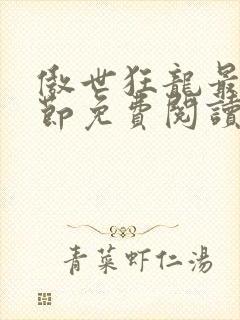 傲世狂龍最
節免費閱讀
青菜虾仁湯